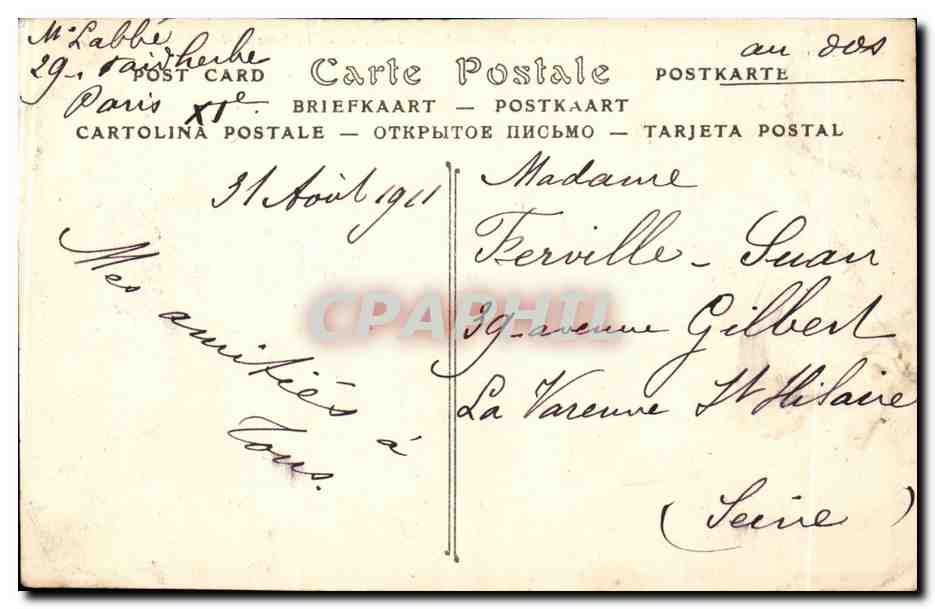 Mr Labbé
29 - Faidherbe
Paris XIe
au dos
POST CARD Carte Postale POSTKARTE
BRIEFKAART — POSTKAART
CARTOLINA POSTALE — ОТКРЫТОЕ ПИСЬМО — TARJETA POSTAL
31 Août 1911
Mes amitiés à
Tous.
Madame
Ferville - Suan
39 - avenue Gilbert
La Varenne St Hilaire
(Seine)
CPARHIL